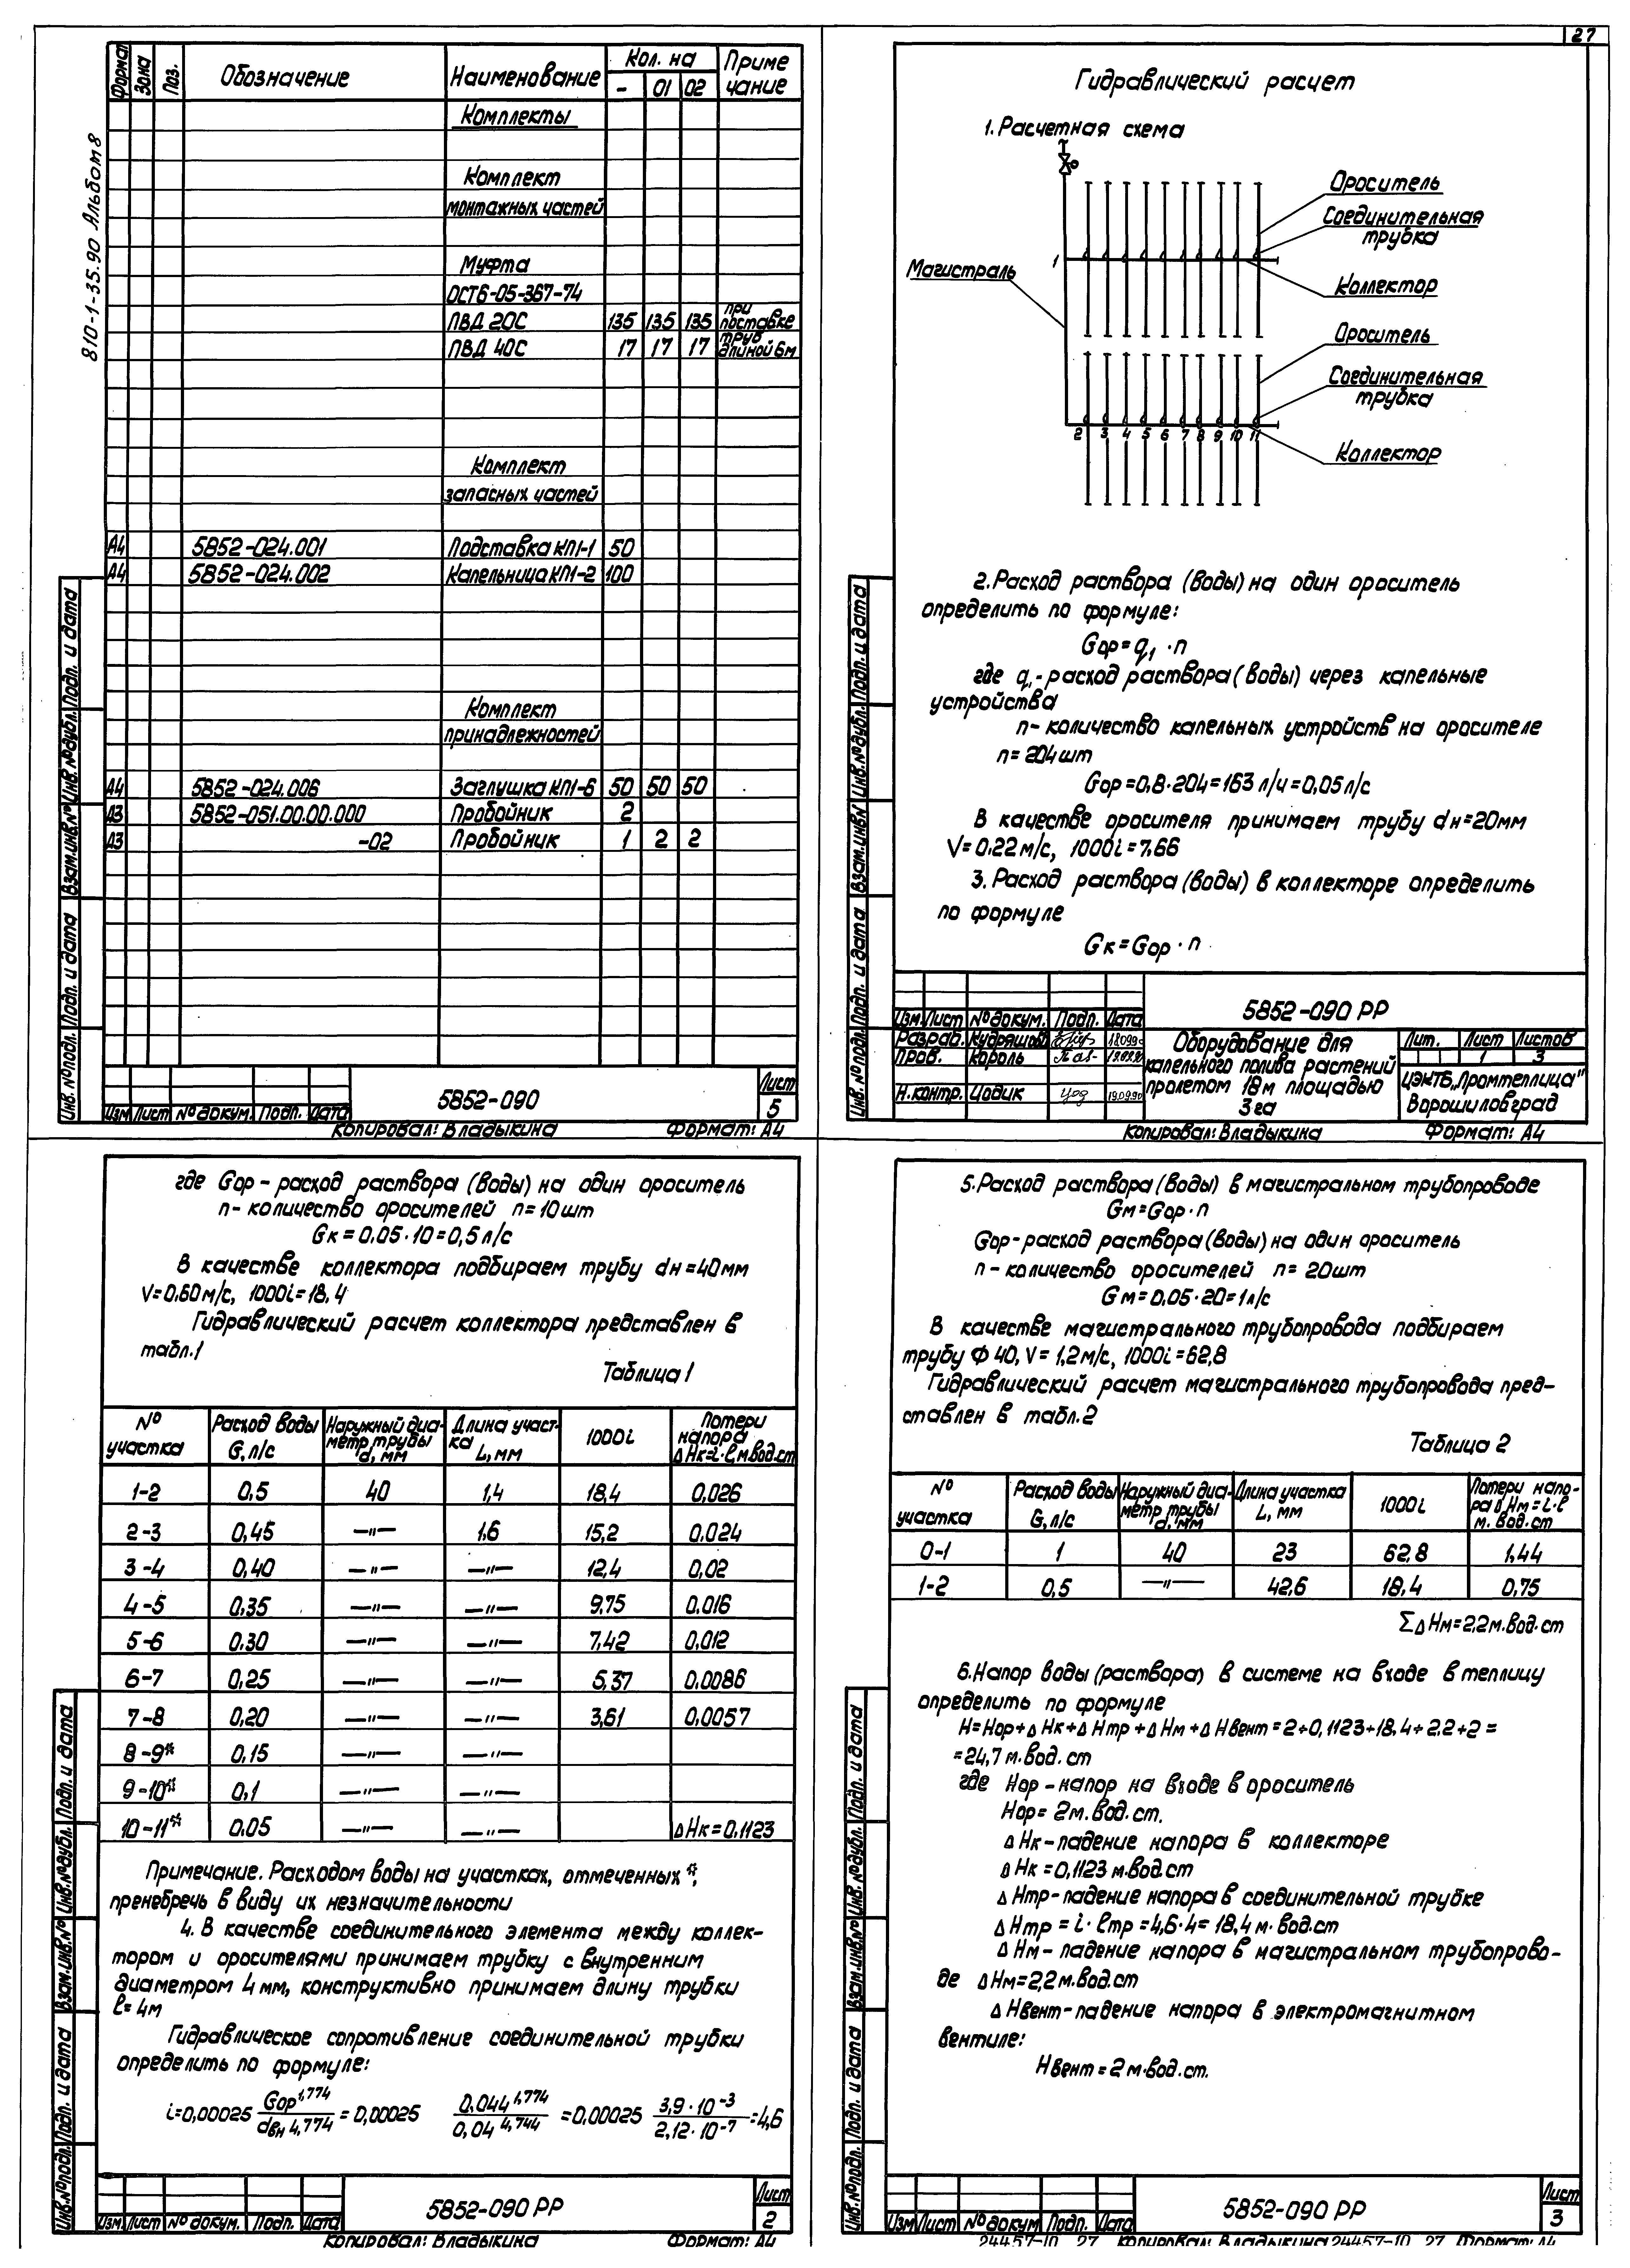 27
810-1-35.90 Альбом 8
Формат Зона Поз. Обозначение Наименование Кол. на Приме
- 01 02 чание
Комплекты
Комплект
монтажных частей
Муфта
ОСТ6-05-367-74
ПВД 20С 135 135 135 при поставке
ПВД 40С 17 17 17 труб длиной 6м
Комплект
запасных частей
А4 5852-024.001 Подставка КП1-1 50
А4 5852-024.002 Капельница КП1-2 100
Комплект
принадлежностей
А4 5852-024.006 Заглушка КП1-6 50 50 50
А3 5852-051.00.00.000 Пробойник 2
А3 -02 Пробойник 1 2 2
Инв.№подл. Подп. и дата Взам.инв.№ Инв.№дубл. Подп. и дата
Изм Лист № докум. Подп. Дата
5852-090
Лист
5
Копировал: Владыкина Формат: А4
Гидравлический расчет
1. Расчетная схема
Ороситель
Соединительная
трубка
1
Магистраль
Коллектор
Ороситель
Соединительная
трубка
2 3 4 5 6 7 8 9 10 11
Коллектор
2. Расход раствора (воды) на один ороситель
определить по формуле:
Gор=q1 · n
где q1-расход раствора (воды) через капельные
устройства
n- количество капельных устройств на оросителе
n=204шт
Gор=0,8·204=163 л/ч=0,05л/с
В качестве оросителя принимаем трубу dн=20мм
V=0.22м/с, 1000i=7,66
3. Расход раствора (воды) в коллекторе определить
по формуле
Gк=Gор · n
Инв.№подл. Подп. и дата Взам.инв№ Инв.№дубл. Подп. и дата
5852-090 РР
Изм. Лист № докум. Подп. Дата
Разраб. Кудряшов
Пров. Король
Н.контр. Цодик 19.09.90
Оборудование для
капельного полива растений
пролетом 18м площадью
3га
Лит. Лист Листов
1 3
ЦЭКТБ„Промтеплица"
Ворошиловград
Копировал: Владыкина Формат: А4
где Gор - расход раствора (воды) на один ороситель
n- количество оросителей n=10шт
Gк=0,05·10=0,5л/с
В качестве коллектора подбираем трубу dн=40мм
V=0,60м/с, 1000i=18,4
Гидравлический расчет коллектора представлен в
табл.1
Таблица 1
№ участка Расход воды G, л/с Наружный диаметр трубы d, мм Длина участка L, мм 1000i Потери напора ΔHк=i·l, м.вод.ст
1-2 0,5 40 1,4 18,4 0,026
2-3 0,45 —"— 1,6 15,2 0,024
3-4 0,40 —"— —"— 12,4 0,02
4-5 0,35 —"— —"— 9,75 0,016
5-6 0,30 —"— —"— 7,42 0,012
6-7 0,25 —"— —"— 5,37 0,0086
7-8 0,20 —"— —"— 3,61 0,0057
8-9* 0,15 —"— —"—
9-10* 0,1 —"— —"—
10-11* 0,05 —"— —"— ΔHк=0,1123
Примечание. Расходом воды на участках, отмеченных *,
пренебречь в виду их незначительности
4. В качестве соединительного элемента между коллек-
тором и оросителями принимаем трубку с внутренним
диаметром 4 мм, конструктивно принимаем длину трубки
l=4м
Гидравлическое сопротивление соединительной трубки
определить по формуле:
i=0,00025 Gор^1,774 / dвн^4,774 = 0,00025 0,044^1,774 / 0,04^4,744 =0,00025 3,9·10^-3 / 2,12·10^-7 =4,6
Инв.№подл. Подп. и дата Взам.инв.№ Инв.№дубл. Подп. и дата
Изм. Лист № докум. Подп. Дата
5852-090 РР
Лист
2
Копировал: Владыкина Формат: А4
5. Расход раствора (воды) в магистральном трубопроводе
Gм=Gор·n
Gор-расход раствора (воды) на один ороситель
n-количество оросителей n=20шт
Gм=0,05·20=1л/с
В качестве магистрального трубопровода подбираем
трубу Ф 40, V=1,2м/с, 1000i=62,8
Гидравлический расчет магистрального трубопровода пред-
ставлен в табл.2
Таблица 2
№ участка Расход воды G, л/с Наружный диаметр трубы d, мм Длина участка L, мм 1000i Потери напора ΔHм=i·l м.вод.ст
0-1 1 40 23 62,8 1,44
1-2 0,5 —"— 42,6 18,4 0,75
ΣΔHм=2,2м.вод.ст
6. Напор воды (раствора) в системе на входе в теплицу
определить по формуле
H=Hор+ΔHк+ΔHтр+ΔHм+ΔHвент=2+0,1123+18,4+2,2+2=
=24,7 м.вод.ст
где Hор-напор на входе в ороситель
Hор=2м.вод.ст.
ΔHк-падение напора в коллекторе
ΔHк=0,1123 м.вод.ст
ΔHтр-падение напора в соединительной трубке
ΔHтр=i·lтр=4,6·4=18,4 м.вод.ст
ΔHм-падение напора в магистральном трубопрово-
де ΔHм=2,2м.вод.ст
ΔHвент-падение напора в электромагнитном
вентиле:
Hвент=2м.вод.ст.
Инв.№подл. Подп. и дата Взам.инв.№ Инв.№дубл. Подп. и дата
Изм Лист № докум Подп. Дата
5852-090 РР
Лист
3
24457-10 27 Копировал: Владыкина 24457-10 27 Формат: А4